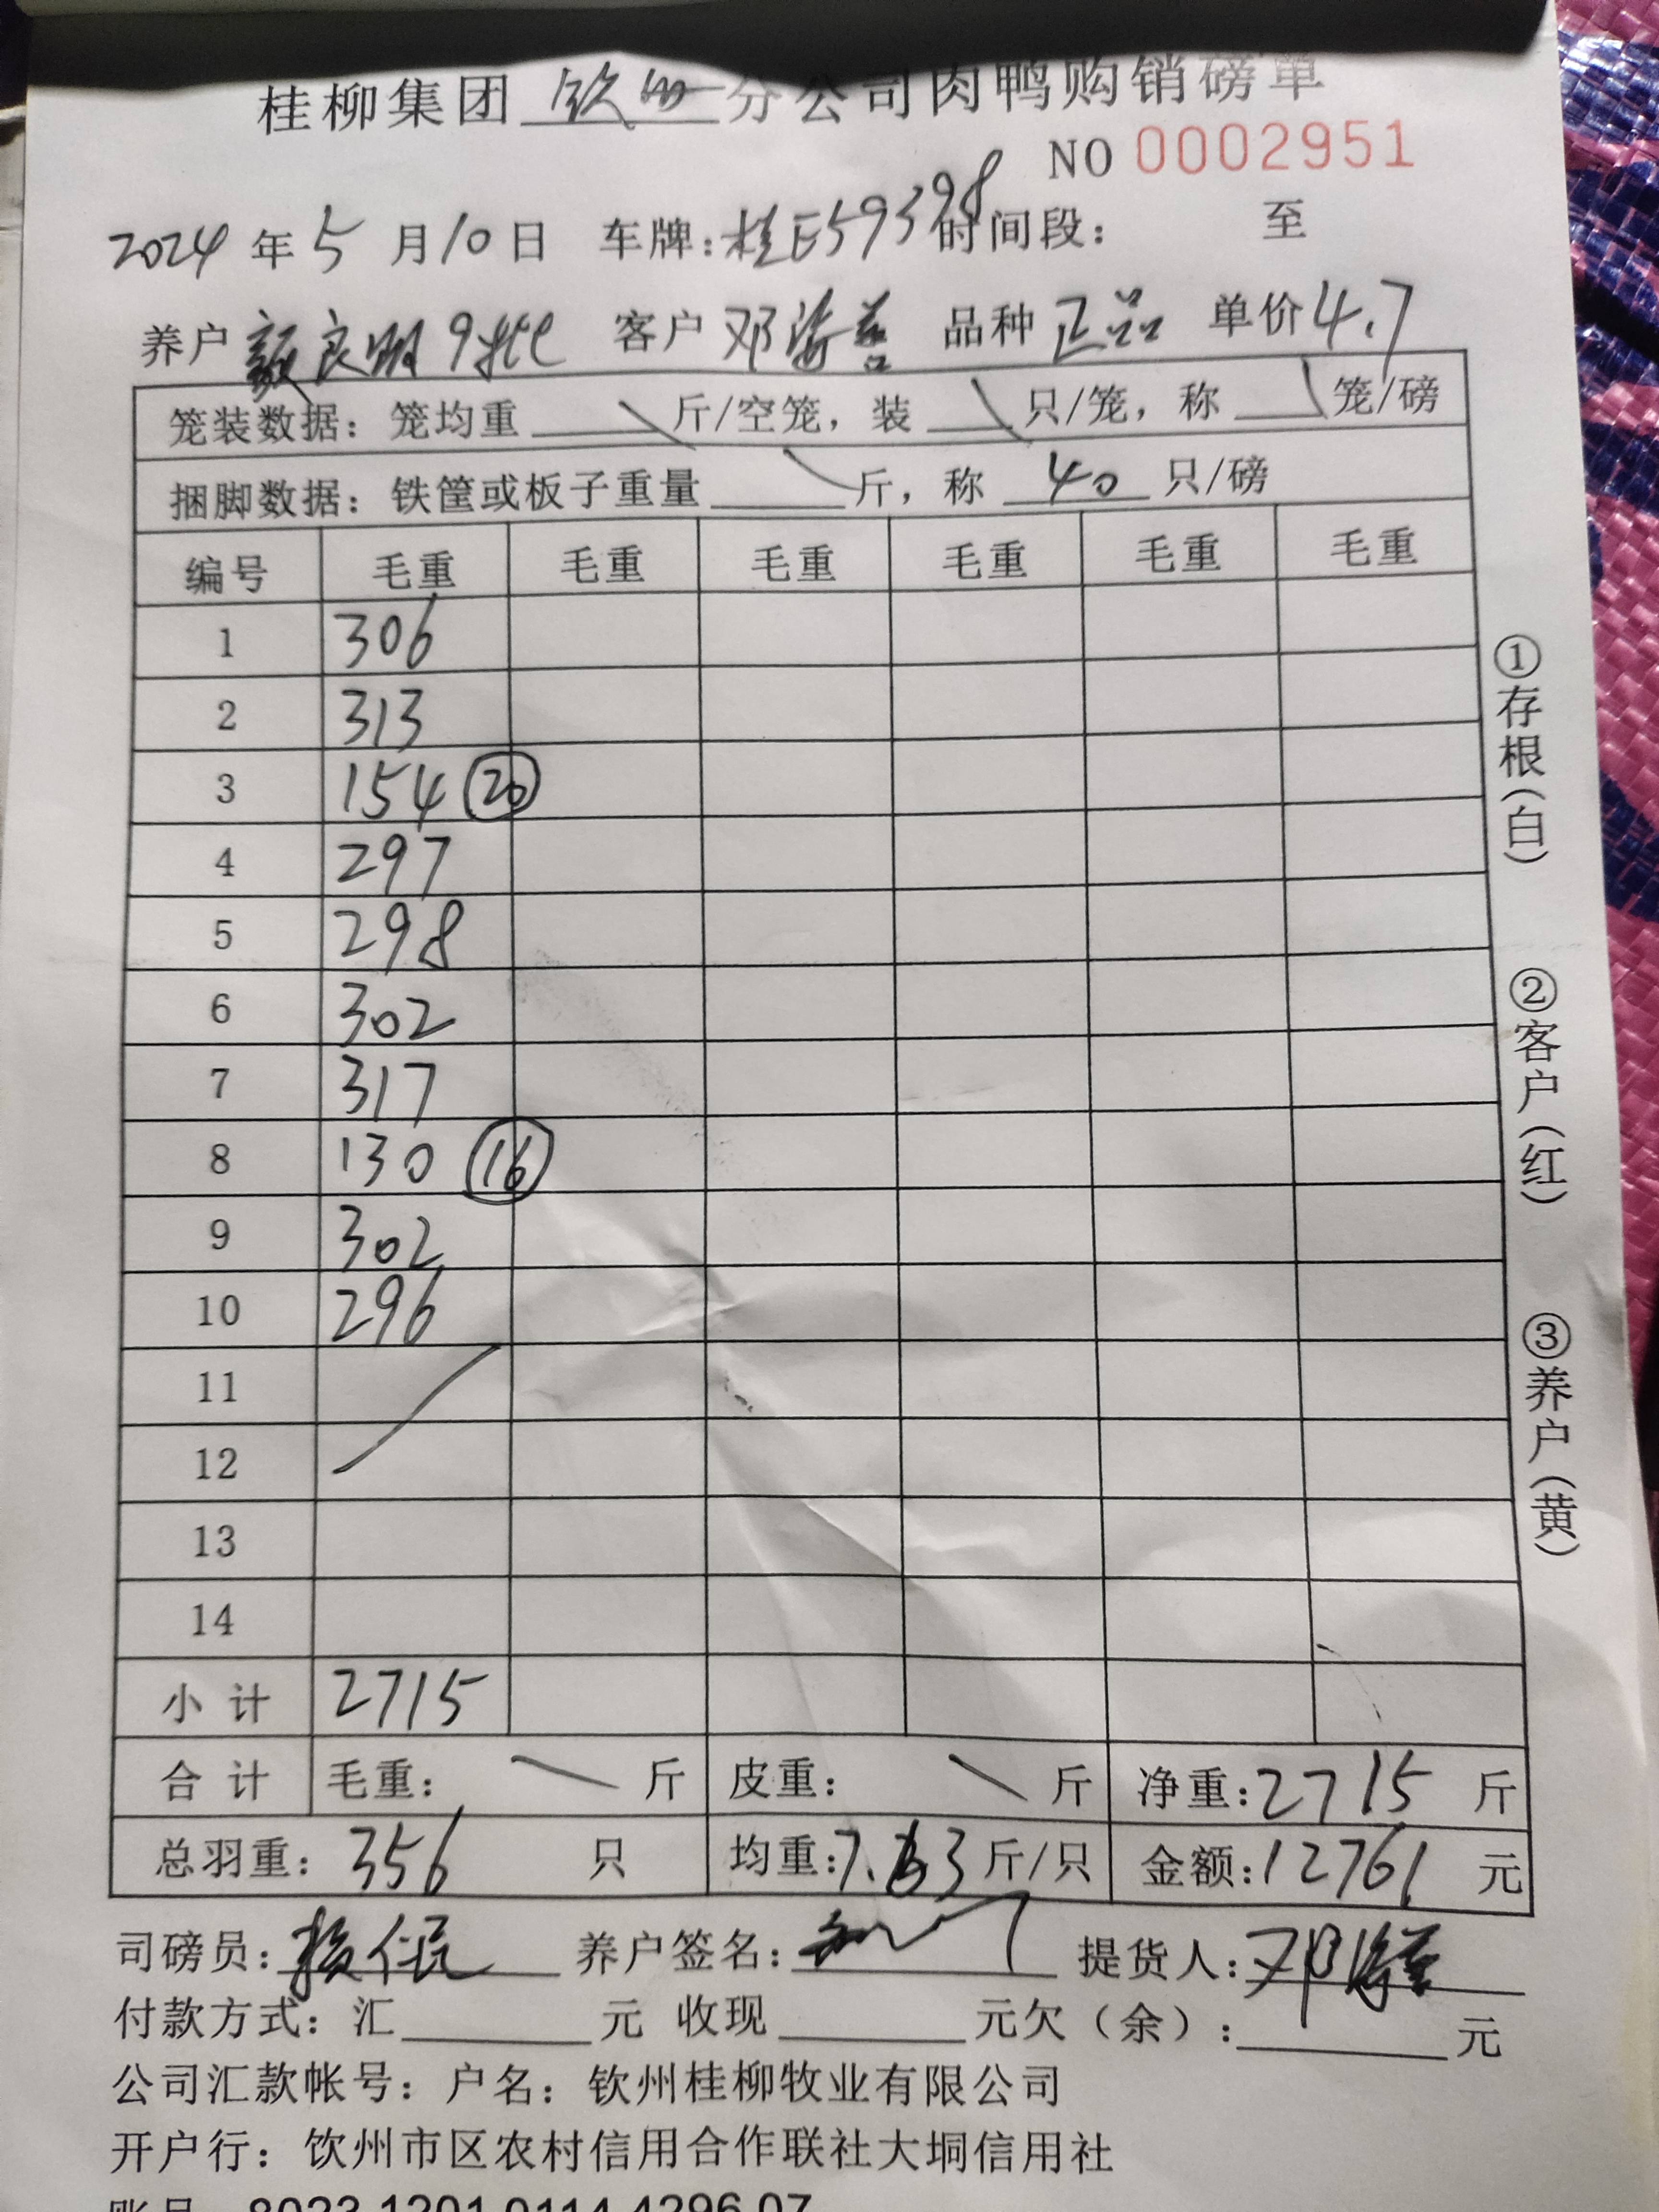 桂柳集团 钦州 分公司肉鸭购销磅单
NO 0002951
2024 年 5 月 10 日 车牌：桂E59398 时间段： 至
养户 颜良明9批 客户 邓海善 品种 正品 单价 4.7
笼装数据：笼均重 斤/空笼，装 只/笼，称 笼/磅
捆脚数据：铁筐或板子重量 斤，称 40 只/磅
编号 毛重 毛重 毛重 毛重 毛重 毛重
1 306
2 313
3 154 ⑳
4 297
5 298
6 302
7 317
8 130 ⑯
9 302
10 296
11
12
13
14
小计 2715
合计 毛重： 斤 皮重： 斤 净重：2715 斤
总羽重： 356 只 均重：7.63 斤/只 金额：12761 元
司磅员： 养户签名： 提货人：
付款方式：汇 元 收现 元欠（余）： 元
公司汇款帐号：户名：钦州桂柳牧业有限公司
开户行：钦州市区农村信用合作联社大垌信用社
①存根（白）
②客户（红）
③养户（黄）